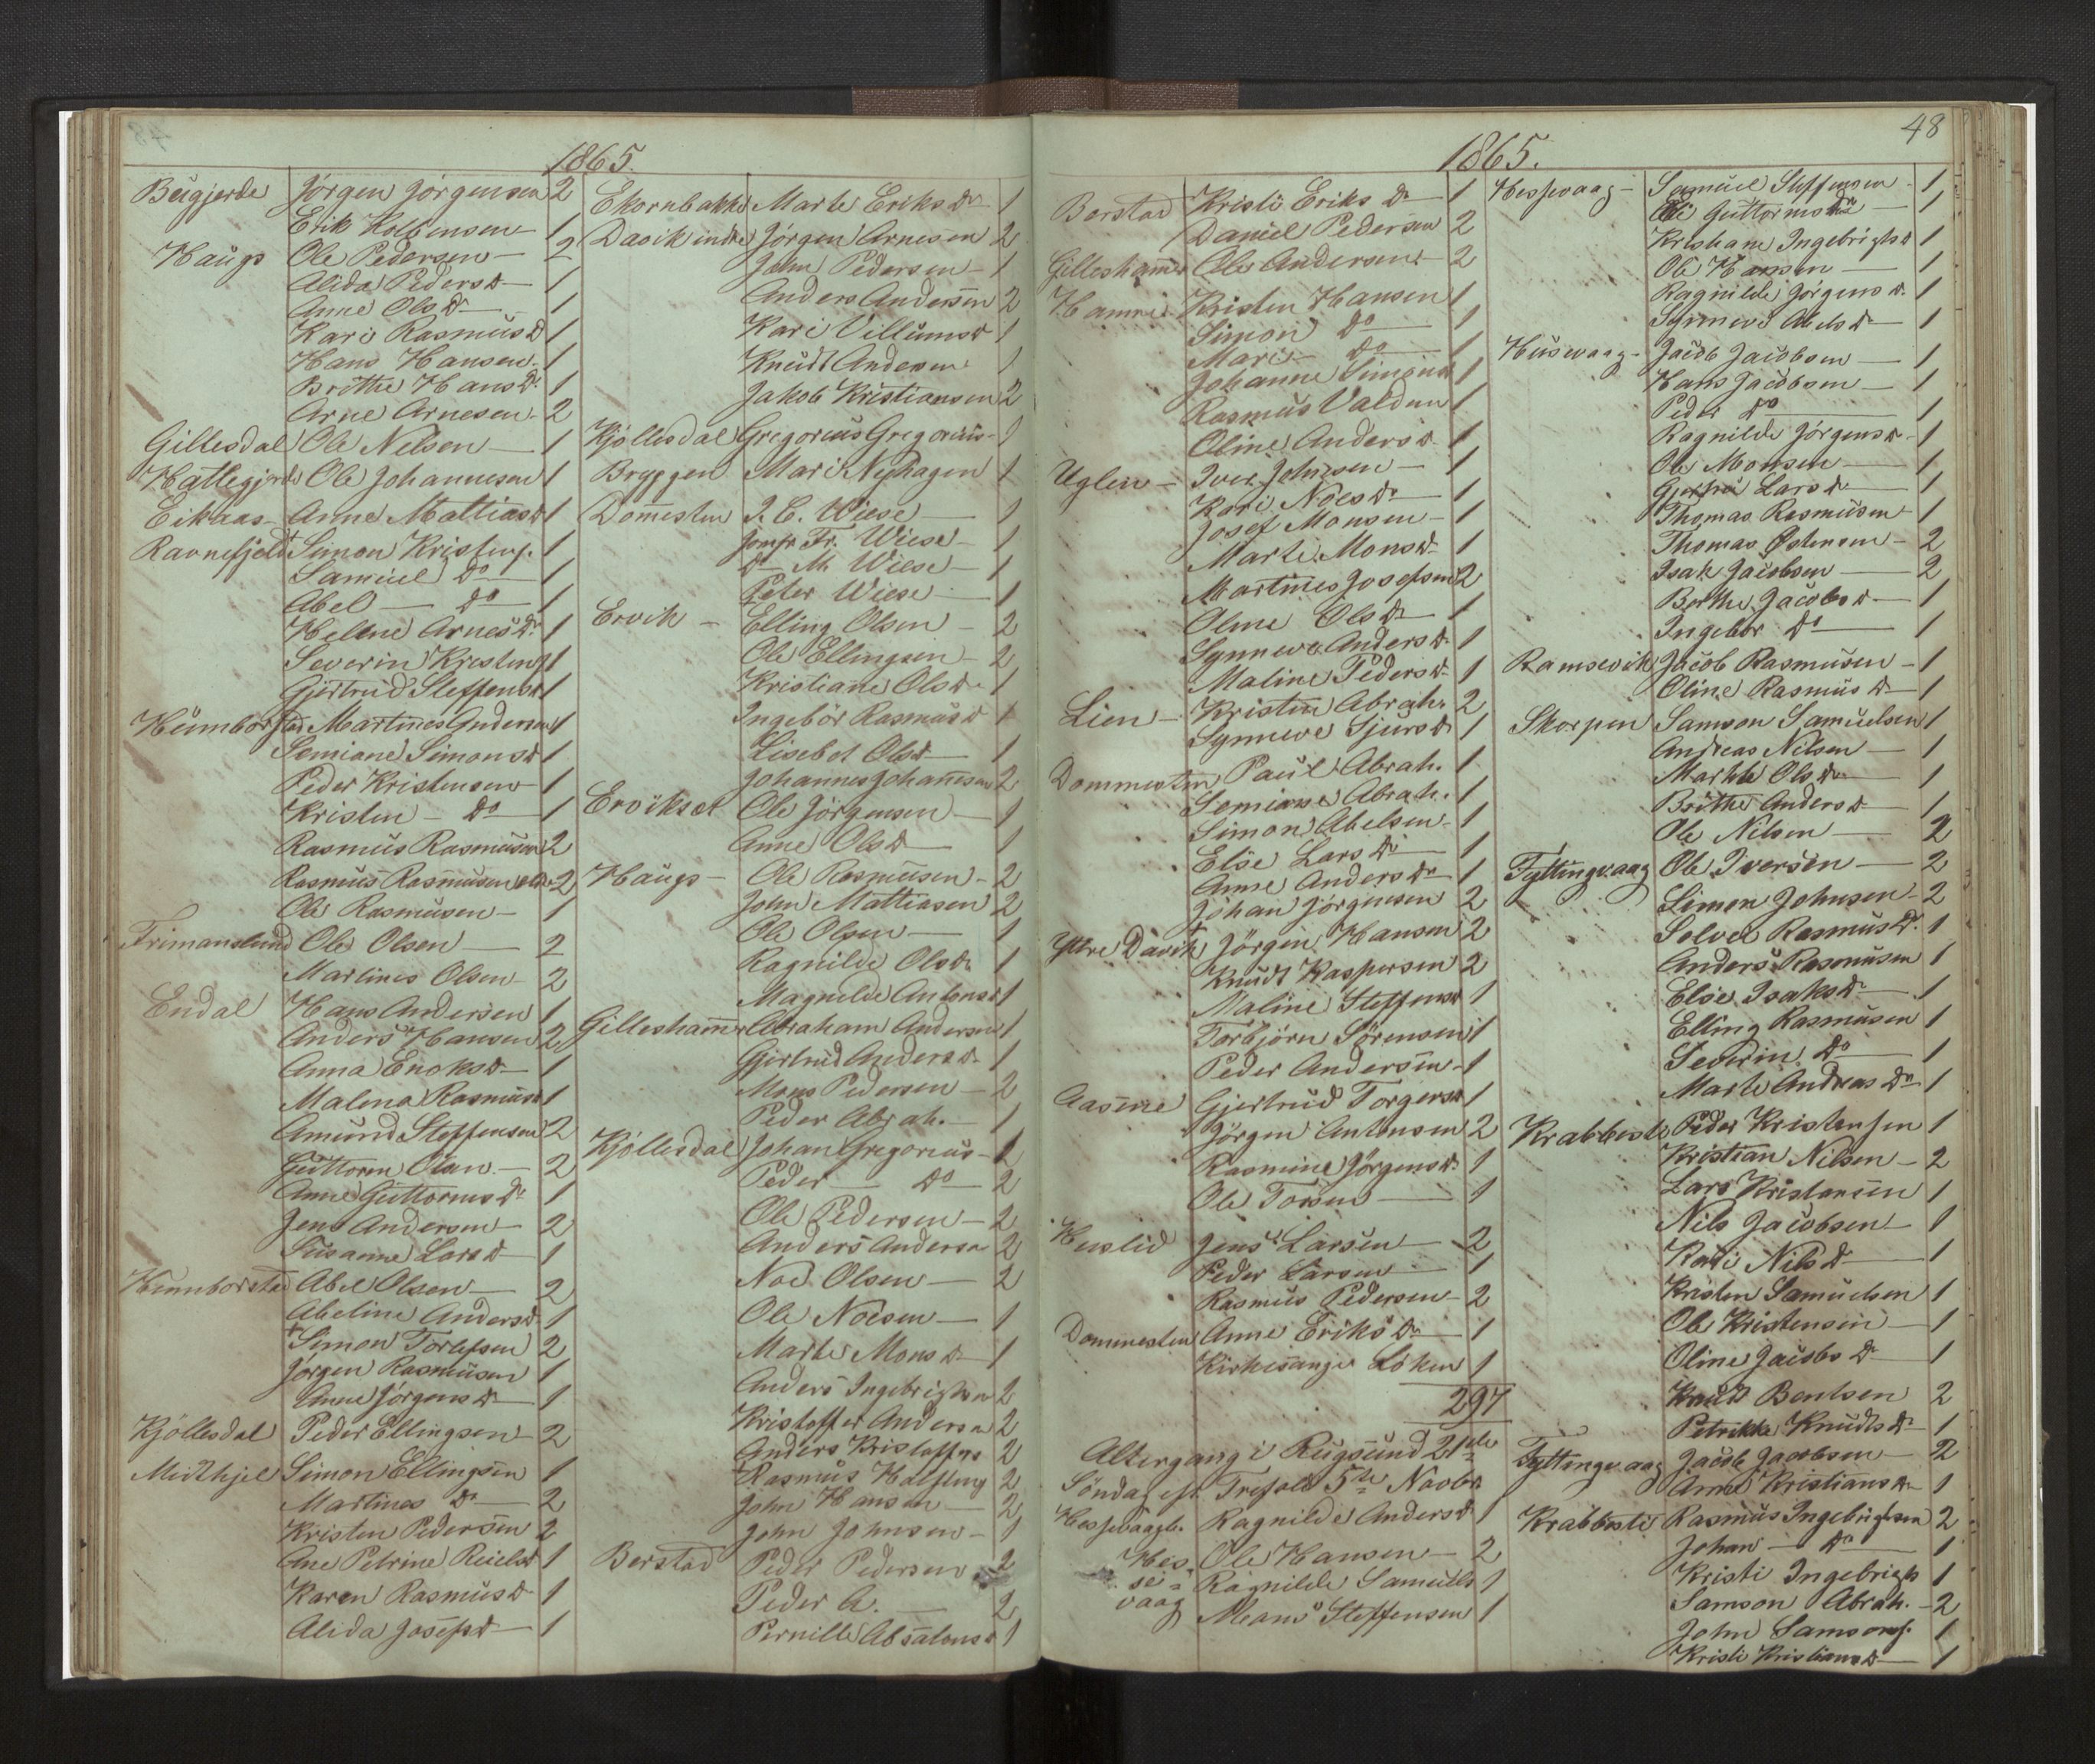 1865.
Jörgen Jörgensen 2
Erik Kolbensen 1
Haugs Ole Pedersen 2
Alida Pedersd 1
Anne Olsdr 1
Kari Rasmusd 1
Hans Hansen 1
Brithe Hansdr 1
Arne Arnesen 2
Gillesdal Ole Nilsen 1
Hatlegjerde Ole Johannesen 1
Eikaas Anne Mattiasd 1
Ravnefjeld Simon Kristens. 1
Samuel Do 1
Abel Do 1
Helene Arnesdr 1
Severin Kristens 1
Gjertrud Steffensd 1
Hennborstad Martines Andersen 1
Semiane Simonsd 1
Peder Kristensen 1
Kristen Do 1
Rasmus Rasmusen 2
Rasmus Rasmusen eldr 2
Ole Rasmusen 1
Frimanslund Ole Olsen 2
Martines Olsen 2
Endal Hans Andersen 1
Anders Hansen 2
Anna Enoksd 1
Malena Rasmusd 1
Amund Steffensen 2
Guttorm 2
Anne Guttormsdr 1
Jens Andersen 2
Susanne Larsd 1
Hennborstad Abel Olsen 2
Abeline Andersd 1
+ Simon Torlefsen 2
Jörgen Rasmusen 1
Anne Jörgensd 1
Kjöllesdal Peder Ellingsen 2
Midthjel Simon Ellingsen 1
Martines Do 2
Kristen Pedersen 2
Ane Petrine 1
Karen Rasmusd 1
Alida Josefsd 1
Ekornbakke Marte Eriksdr 1
Davik indre Jörgen Arnesen 2
John Pedersen 1
Anders Andersen 2
Kari Villumsd 1
Knudt Andersen 1
Jakob Kristiansen 2
Kjöllesdal Gregorius Gregorius 1
Bryggen Mari Nyhagen 1
Domesten J. C. Wiese 1
Jomfr Fr. Wiese 1
Do M. Wiese 1
Peter Wiese 1
Ervik Elling Olsen 2
Ole Ellingsen 2
Kristiane Olsdr 1
Ingebör Rasmusd 1
Lisebet Olsd 1
Johannes Johannesen 2
Erviksæt Ole Jörgensen 1
Anne Olsd 1
Haugs Ole Rasmusen 2
John Mattiasen 2
Ole Olsen 1
Ragnilde Olsdr 1
Magnilde Antonsd 1
Gilleshammer Abraham Andersen 1
Gjertrud Andersd 1
Mons Pedersen 2
Peder Abrah. 1
Kjöllesdal Johan Gregorius 1
Peder Do 2
Ole Pedersen 2
Anders Andersen 2
Noe Olsen 2
Ole Noesen 1
Marte Monsd 1
Anders Ingebrigtsen 2
Kristoffer Andersen 2
Anders Kristoffers 2
Rasmus 2
John Hansen 2
John Johnsen 1
Berstad Peder Pedersen 2
Peder A. 2
Pernille Absalonsd 1
48
1865.
Berstad Kristi Eriksdr 1
Daniel Pedersen 2
Gilleshammer Ole Andersen 2
Hamre Kristen Hansen 1
Simon Do 1
Mari Do 1
Johanne Simonsd 1
Rasmus Valdem 1
Oline Andersd 1
Uglen Iver Johnsen 1
Kari Noesdr 1
Josef Monsen 1
Marte Monsd 1
Martines Josefsen 2
Oline Olsdr 1
Synneva Andersd 1
Maline Pedersd 1
Lien Kristen Abrah. 2
Synneve Sjursd 1
Dommesten Paul Abrah. 1
Semiane Abrah. 1
Simon Abelsen 1
Else Larsdr 1
Anne Andersdr 1
Johan Jörgensen 2
Ytre Davik Jörgen Hansen 2
Knudt Kaspersen 2
Maline Steffensd 1
Torbjörn Sörensen 1
Peder Andersen 1
Aasene Gjertrud Torgersd 1
Jörgen Antonsen 2
Rasmine Jörgensdr 1
Ole 1
Huslid Jens Larsen 2
Peder Larsen 1
Rasmus Pedersen 2
Dommesten Anne Eriksdr 1
Kirkesanger Löken 1
297
Altergang i Rugsund 21de
Söndag eft. Trefold. 5te Novbr
Ragnilde Andersd 1
Hessevaag Ole Hansen 2
Ragnilde Samuels 1
Mons Steffensen 1
Hessevaag Samuel Steffensen 1
Guttormsdr 1
Kristiane Ingebrigtsd 1
Ole Hansen 1
Ragnilde Jörgensd. 1
Synneve Abelsd 1
Husevaag Jacob Jacobsen 1
Hans Jacobsen 1
Peder Do 1
Ragnilde Jörgensd 1
Ole Monsen 1
Larsd 1
Thomas Rasmusen 1
Thomas Östensen 2
Isak Jacobsen 2
Berthe Jacobsd 1
Ingebor Do 1
Ramsevik Jacob Rasmusen 1
Oline Rasmusd 1
Skorpen Samson Samuelsen 1
Andreas Nilsen 1
Marthe Olsdr 1
Brithe Andersd 1
Ole Nilsen 2
Tyttingvaag Ole Iversen 2
Simon Johnsen 2
Solvei Rasmusdr 1
Anders Rasmusen 1
Else Isaksdr 1
Elling Rasmusen 1
Severin Do 1
Marte Andreasdr 1
Krabbesti Peder Kristensen 1
Kristian Nilsen 2
Lars Kristensen 1
Nils Jacobsen 1
Kari Nilsd 1
Kristen Samuelsen 1
Ole Kristensen 1
Oline Jacobsd 1
Knudt Bentsen 2
Petrikke Knudtsdr 1
Tyttingvaag Jacob Jacobsen 2
Anne Kristiansdr 1
Krabbesti Rasmus Ingebrigtsen 2
Johan Do 1
Kristi Ingebrigts 1
Samson Abrah. 2
John Samsons. 1
Kristi Kristiansd 1